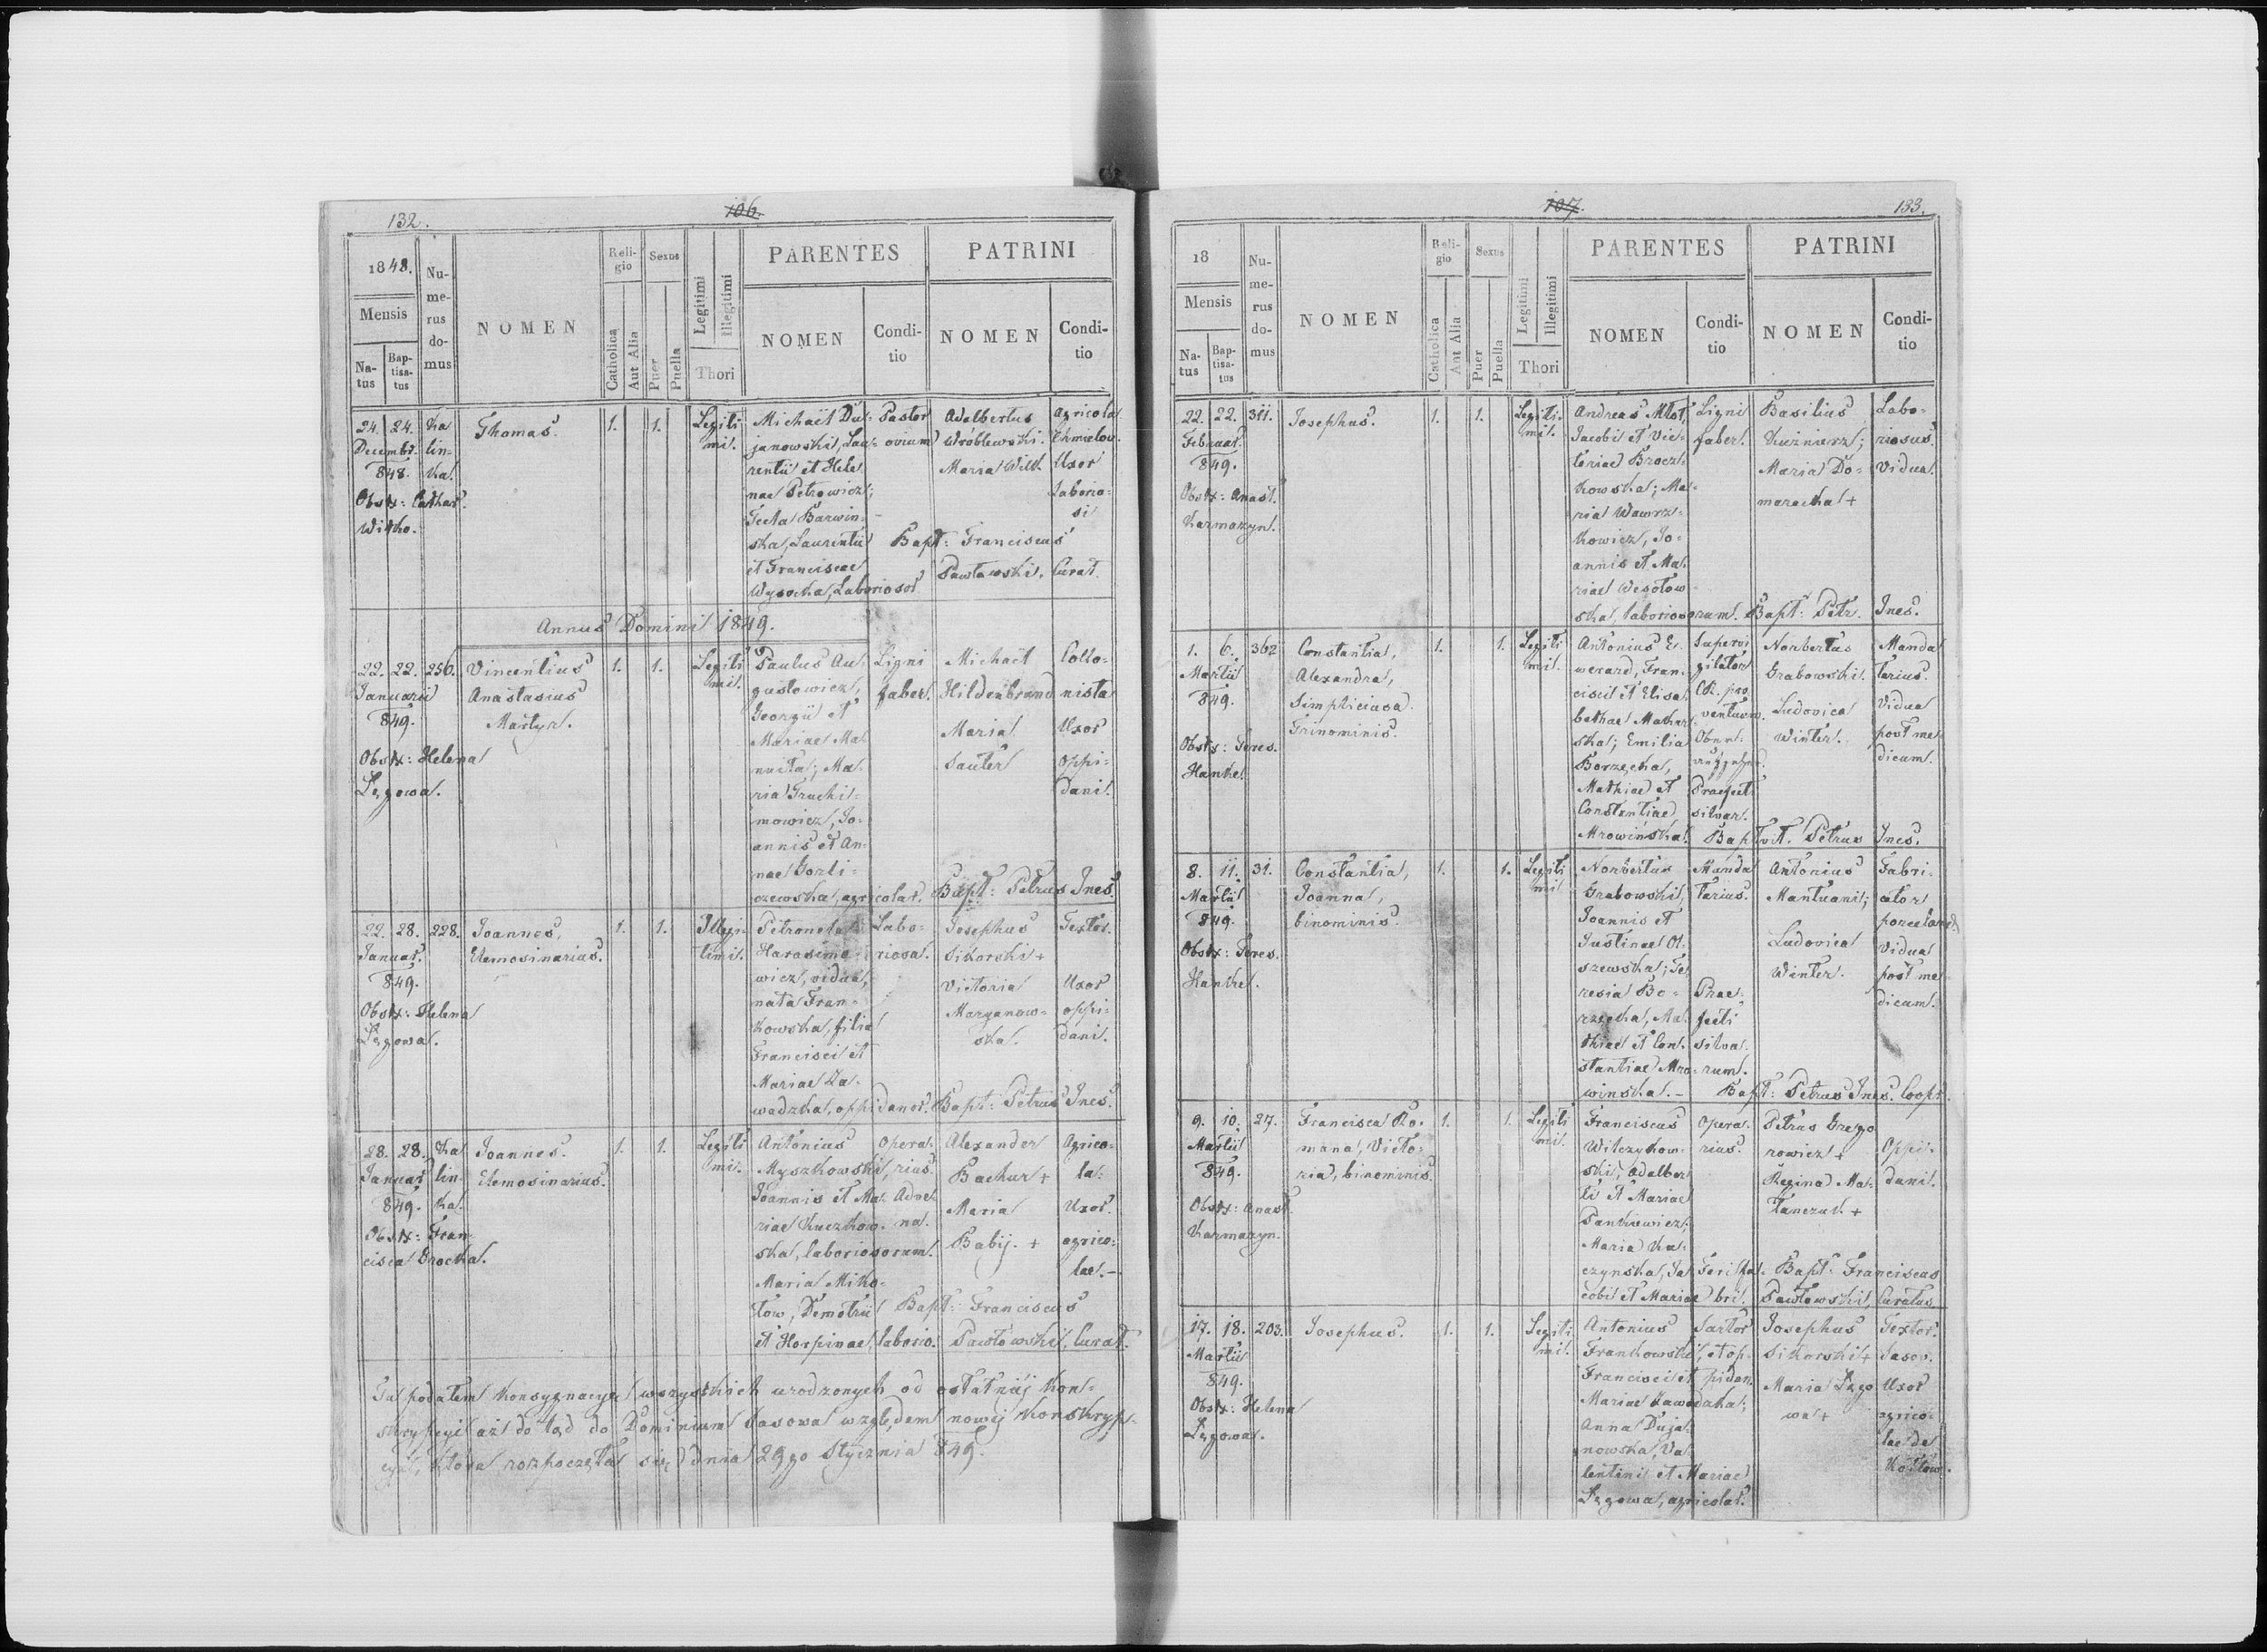 132.
106.
1848.
Mensis
Na-
tus
Bap-
tisa-
tus
Nu-
me-
rus
do-
mus
NOMEN
Reli-
gio
Catholica
Aut Alia
Sexus
Puer
Puella
Legitimi
Illegitimi
Thori
PARENTES
NOMEN
Condi-
tio
PATRINI
NOMEN
Condi-
tio
24. 24.
Decembr.
848.
Obstx: Cathar.
Witko.
Ka
lin-
ka.
Thomas.
1.
1.
Legiti
mi.
Michaël Du-
janowski, Lau-
rentii et Hele
nae Petrowicz;
Tecla Barwin-
ska, Laurentii
et Franciscae
Wysocka, Laborios or.
Pastor
ovium
Adalbertus
Wróblewski.
Maria Wilk
Agricola
Chmielow.
Uxor
laborio-
si
Bapt: Franciscus
Pawłowski, Curat.
Annus Domini 1849.
22. 22. 256.
Januarii
849.
Obstx: Helena
Łęgowa.
Vincentius
Anastasius
Martyr.
1.
1.
Legiti
mi.
Paulus Au-
gustowicz,
Georgii et
Mariae Ma-
Ma-
ria
mowicz, Jo-
annis et An-
nae Gorli-
czewska, agricolar.
Ligni
faber.
Michaël
Hildenbrand
Maria
Sauter
Collo-
nista
Uxor
oppi-
dani.
Bapt: Petrus Ines.
22. 28. 228.
Januar.
849.
Obstx: Helena
Łęgowa.
Joannes,
Elemosinarius.
1.
1.
Illegi-
timi.
Petronela
Harasimo-
wicz, vidua,
nata Fran-
kowska, filia
Francisci et
Mariae Za-
wadzka, oppidanor.
Labo-
riosa.
Josephus
Sikorski +
Victoria
Marganow-
ska.
Textor.
Uxor
oppi-
dani.
Bapt: Petrus Ines.
28. 28.
Januar.
849.
Obstx: Fran-
cisca Srocka.
Ka
lin-
ka.
Joannes.
Elemosinarius.
1.
1.
Legiti
mi.
Antonius
Myszkowski,
Joannis et Ma-
riae Kuczkow-
ska, laboriosorum.
Maria Miko-
łow, Demetrii
et Horpinae, laborio.
Opera-
rius.
Advel
na.
Alexander
Bachur +
Maria
Babij. +
Agrico-
la.
Uxor
agrico-
lae.
Bapt: Franciscus
Pawłowski, Curat.
Tu podałem konsygnacyę wszystkich urodzonych od ostatniej kon-
skrypcyi aż do tąd do Dominium względem nowej konskryp-
cyi, która rozpoczęła się dnia 29go Stycznia 849.
107.
133.
18
Mensis
Na-
tus
Bap-
tisa-
tus
Nu-
me-
rus
do-
mus
NOMEN
Reli-
gio
Catholica
Aut Alia
Sexus
Puer
Puella
Legitimi
Illegitimi
Thori
PARENTES
NOMEN
Condi-
tio
PATRINI
NOMEN
Condi-
tio
22. 22. 311.
Februar.
849.
Obstx: Anast.
Karmazyn.
Josephus.
1.
1.
Legiti-
mi.
Andreas Młot,
Jacobi et Vic-
toriae Brocz-
kowska; Ma-
ria Wawrz-
kowicz, Jo-
annis et Ma-
riae Wesołow
ska, laboriosorum.
Ligni
faber.
Basilius
Kuźnierz;
Maria Do-
maracka +
Labo-
riosus.
Vidua.
Bapt: Petr. Ines.
1. 6. 362
Martii
849.
Obstx: Teres.
Hankel.
Constantia,
Alexandra,
Simpliciasa.
Trinominis.
1.
1.
Legiti
mi.
Antonius E-
werard, Fran-
cisci et Elisa-
bethae Mathar-
ska; Emilia
Borzęcka,
Mathiae et
Constantiae
Mrowińska.
Supervi
gilator
CR. pro
ventuum.
Praefecti
silvar.
Norbertus
Grabowski.
Ludovica
Winter.
Manda
tarius.
Vidua
post me
dicum.
Baptvit. Petrus Ines.
8. 11. 31.
Martii
849.
Obstx: Teres.
Hankel.
Constantia,
Joanna,
binominis.
1.
1.
Legiti
mi.
Norbertus
Grabowski,
Joannis et
Justinae Ol-
szewska; Te
resia Bo-
rzęcka, Ma-
thiae et Con-
stantiae Mro-
winska.
Manda
tarius.
Prae-
fecti
silva-
rum.
Antonius
Mantuani;
Ludovica
Winter.
Fabri-
cator
porcelan.
Vidua
post me
dicum.
Bapt: Petrus Ines. Coop.
9. 10. 27.
Martii
849.
Obstx: Anast.
Karmazyn.
Francisca Ro-
mana, Victo-
ria, binominis.
1.
1.
Legiti
mi.
Franciscus
Wilczykow-
ski, Adalber
ti et Mariae
Pankiewicz,
Maria Ka-
czynska, Ja-
cobi et Mariae
Opera-
rius.
bri.
Petrus Grego
rowicz +
Regina Ma-
łanczuk +
Oppi-
dani.
Bapt: Franciscus
Pawłowski, Curatus.
17. 18. 203.
Martii
849.
Obstx: Helena
Łęgowa.
Josephus.
1.
1.
Legiti
mi.
Antonius
Frankowski,
Francisci et
Mariae Zawadzka;
Anna Duja-
nowska, Va-
lentini et Mariae
Łęgowa, agricolar.
Sartor
et op-
pidan.
Josephus
Sikorski +
Maria Łęgo
wa +
Textor.
Uxor
agrico-
lae de